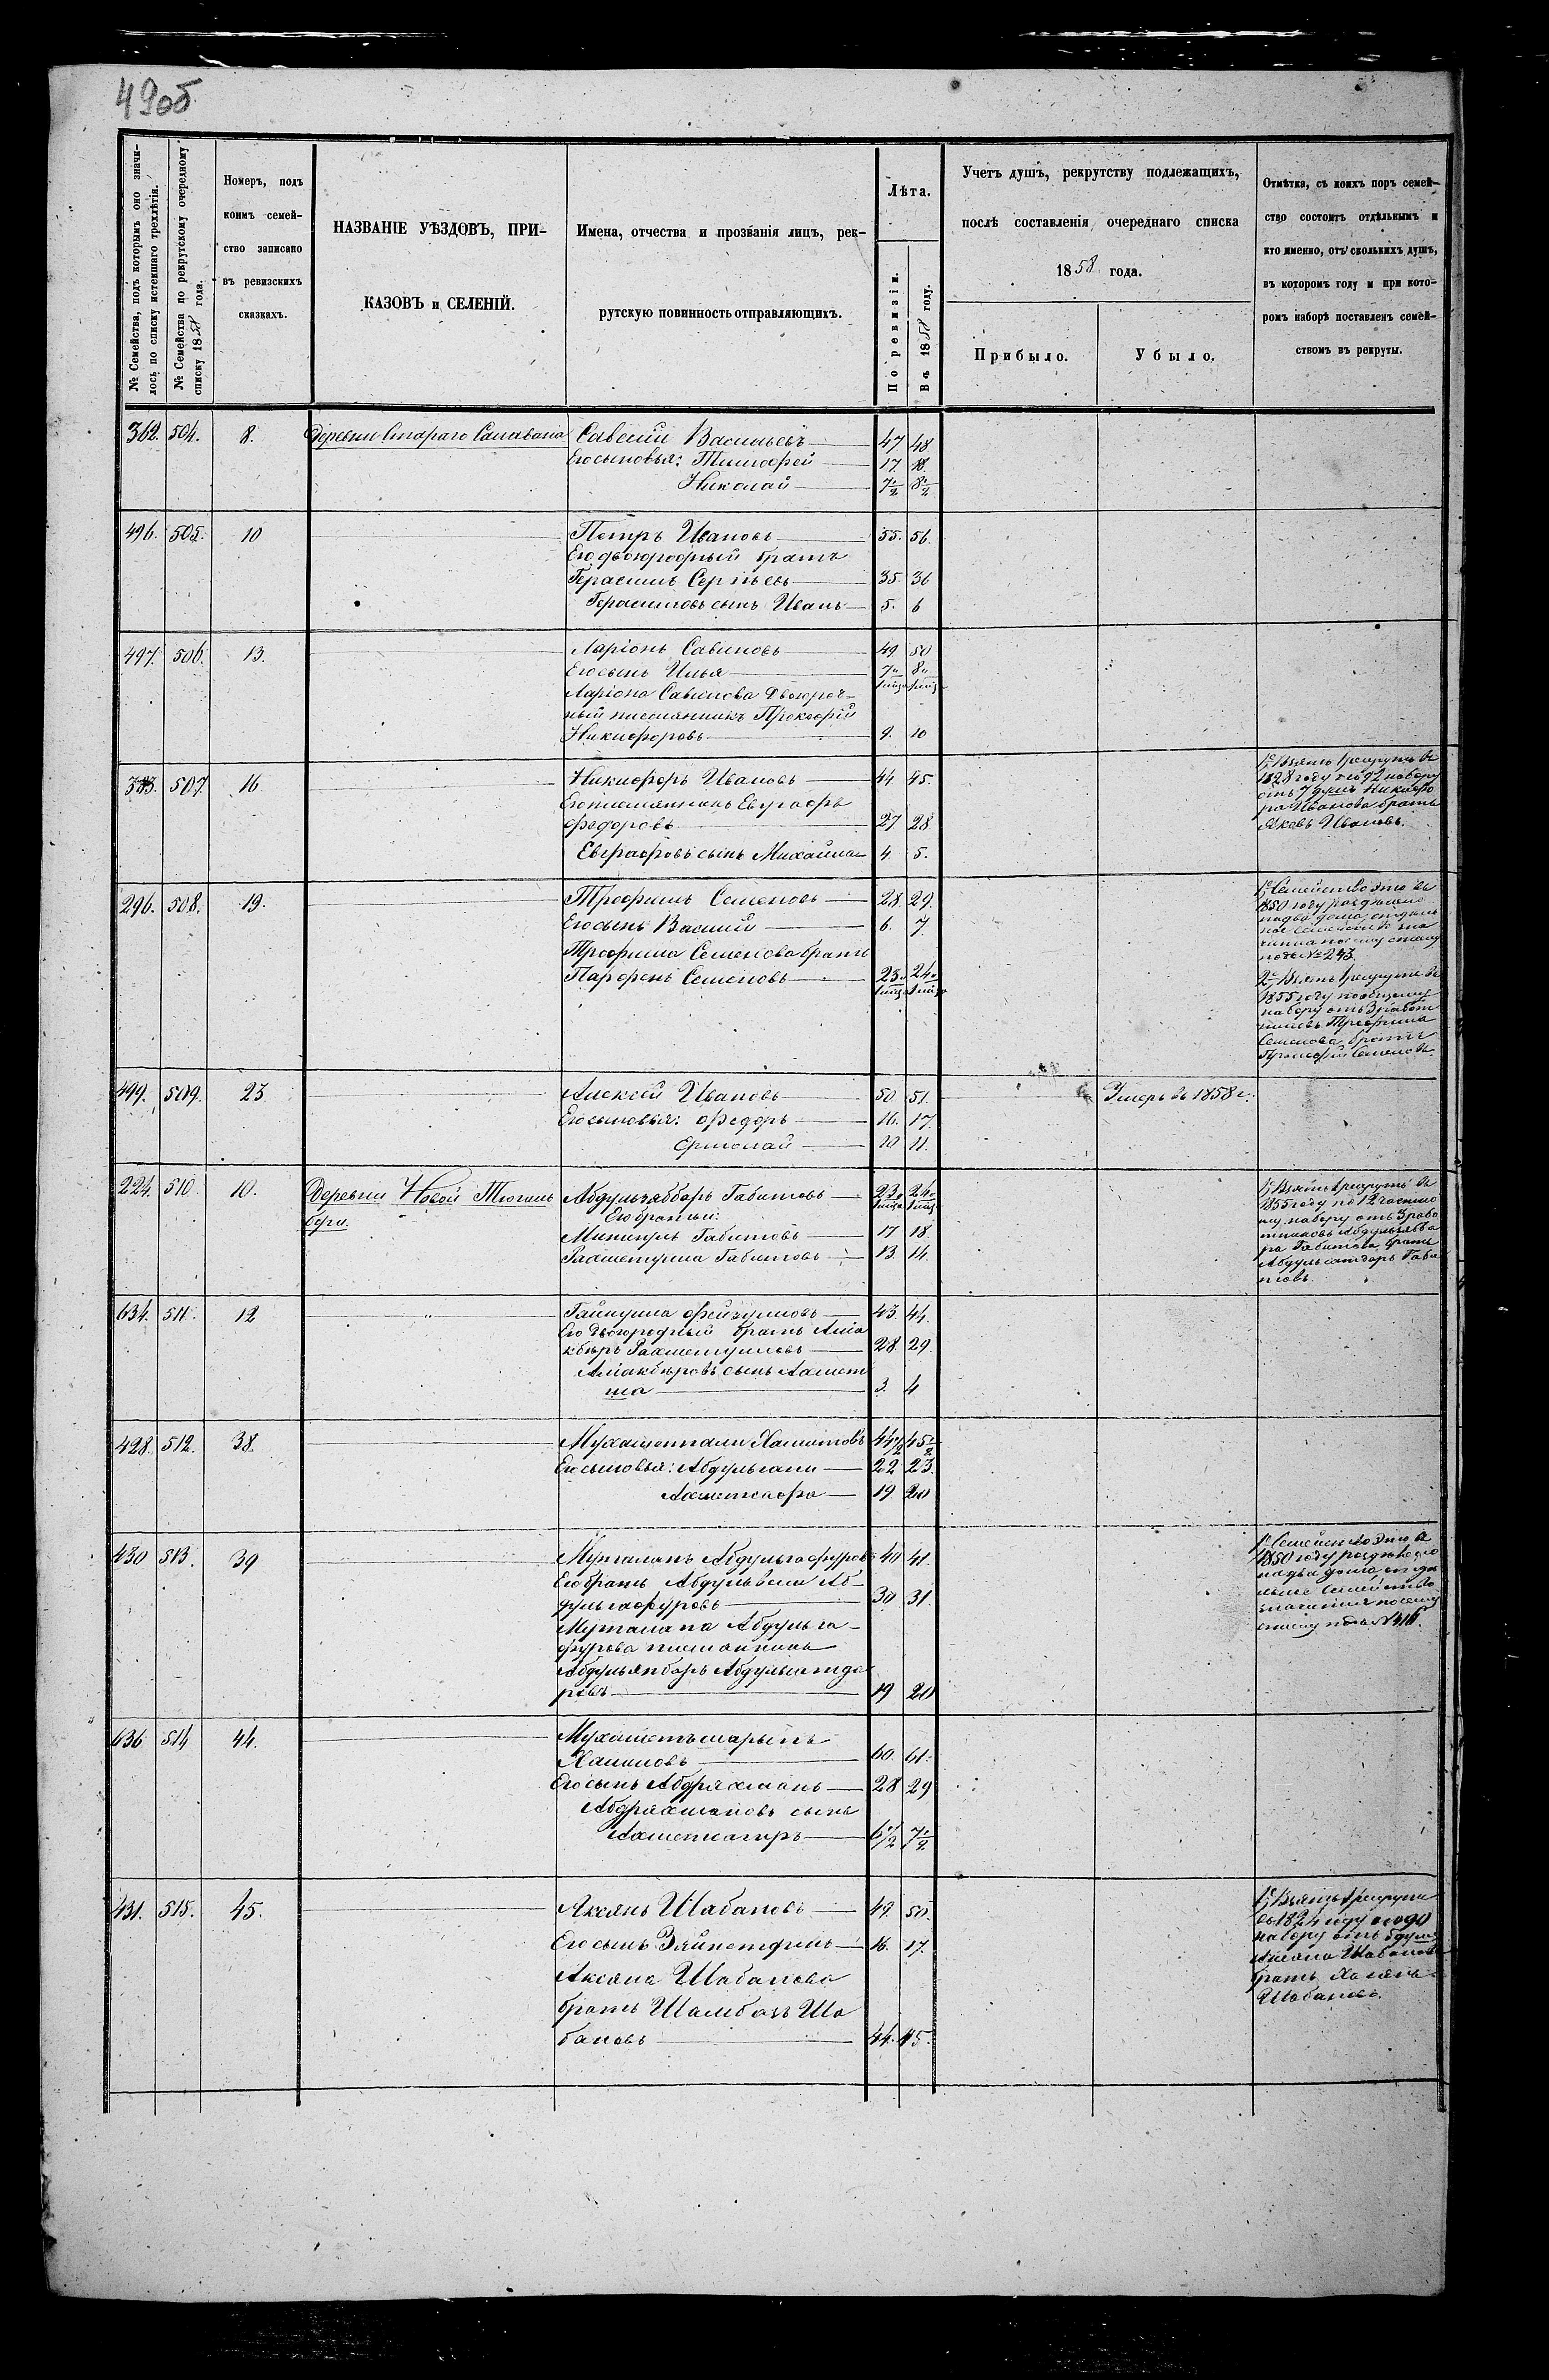 49об
№ Семейства, подъ которымъ оно значи-
лось по списку истекшаго трехлѣтія.
№ Семейства по рекрутскому очередному
списку 1858 года.
Номеръ, подъ
коимъ семей-
ство записано
въ ревизскихъ
сказкахъ.
НАЗВАНІЕ УѢЗДОВЪ, ПРИ-
КАЗОВЪ и СЕЛЕНІЙ.
Имена, отчества и прозванія лицъ, рек-
рутскую повинность отправляющихъ.
Лѣта.
По ревизіи.
Въ 1858 году.
Учетъ душъ, рекрутству подлежащихъ,
послѣ составленія очереднаго списка
1858 года.
Прибыло.
Убыло.
Отмѣтка, съ коихъ поръ семей-
ство состоитъ отдѣльнымъ и
кто именно, отъ сколькихъ душъ,
въ которомъ году и при кото-
ромъ наборѣ поставленъ семей-
ствомъ въ рекруты.
362. 504. 8. Деревни Стараго Савелій Васильевъ 47 48
Его сыновья: Тимофей 17 18.
Николай 7½ 8½
496. 505. 10 Петръ Ивановъ 55. 56.
Его двоюродный братъ
Герасимъ Сергѣевъ 35. 36
Герасимовъ сынъ Иванъ 5. 6
497. 506. 13. Ларіонъ Савиновъ 49 50
Его сынъ Илья 7 8
Ларіона Савинова двоюрод-
ный племянникъ Прокофій
Никифоровъ 9. 10
507 16 Никифоръ Ивановъ 44 45.
Его племянникъ Евграфъ
Федоровъ 27 28
Евграфовъ сынъ Михайла 4 5.
1е, Взятъ въ рекруты въ
1828 году по 92 набору
отъ 7 душъ Никифо
ра Иванова братъ
Яковъ Ивановъ.
296. 508. 19. Трофимъ Семеновъ 28. 29.
Его сынъ Василій 6. 7.
Трофима Семенова братъ
Парфенъ Семеновъ 23 24
1е, Семейство это въ
1850 году раздѣлено
на два дома, отдѣль
ное семейство зна
чится по сему списку
подъ № 243.
2е, Взятъ въ рекруты въ
1855 году по
набору отъ 3 работ
никовъ Трофима
Семенова братъ
Прокофій Семеновъ
499. 509. 23. Алексѣй Ивановъ 50. 51. Умеръ въ 1858 г.
Его сыновья: Федоръ 16. 17.
Ермолай 10 11.
224. 510. 10. Деревни Новой Абдульзяббаръ Габитовъ 23 24
Его братья:
Габитовъ 17 18.
Габитовъ 13. 14.
1е, Взятъ въ рекруты въ
1855 году по 12 частно
му набору отъ 3 рабо
тниковъ Абдульзябба
ра Габитова братъ
Габи
товъ.
634. 511. 12 43. 44.
Его двоюродный братъ Алла
кбѣръ Рахметуллинъ 28. 29.
сынъ Ахмет
ша 3. 4
428 512. 38 Мухаметгали Хамитовъ 44½ 45½
Его сыновья: Абдульгани 22 23.
Ахметсафа 19. 20
430 513. 39 Абдульгафуровъ 40 41.
Его братъ Абдулвели Аб-
дульгафуровъ 30 31.
Абдульга-
фурова племянникъ
19 20
1е, Семейство это въ
1850 году раздѣлено
на два дома, отдѣ
льное семейство
значится по сему
списку подъ № 416.
636 514 44.
Халиловъ 60. 61.
Его сынъ Абдряхманъ 28 29
Абдряхмановъ сынъ
6½ 7½
431. 515. 45. Аксянъ Шабановъ 49. 50.
Его сынъ Зяйнетдинъ 16. 17.
Аксяна Шабанова
братъ Ша
бановъ 44. 45.
1е, Взятъ въ рекруты
въ 1824 году по 90
набору отъ 6 душъ
Аксяна Шабанова
братъ Хасянъ
Шабановъ.